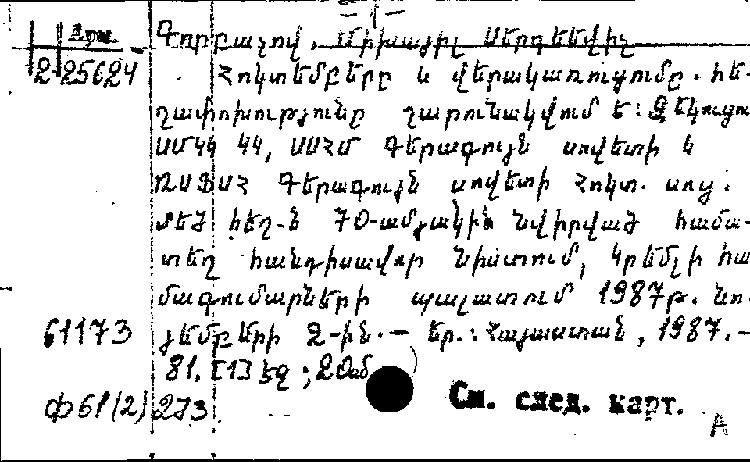 — 1 —
Арм. Գորբաչով, Միխայիլ Սերգեևիչ
2-25624 Հոկտեմբերը և վերակառուցումը. հե-
ղափոխությունը շարունակվում է: Զեկուցում
ՍՄԿԿ ԿԿ, ՍՍՀՄ Գերագույն սովետի և
ՌՍՖՍՀ Գերագույն սովետի Հոկտ. սոց.
մեծ հեղ-ն 70-ամյակին նվիրված համա-
տեղ հանդիսավոր նիստում, Կրեմլի հա
մագումարների պալատում 1987թ. նո-
61173 յեմբերի 2-ին. — Եր.: Հայաստան, 1987. –
81, [1] էջ ; 20սմ
Ф61(2)273 См. след. карт.
A